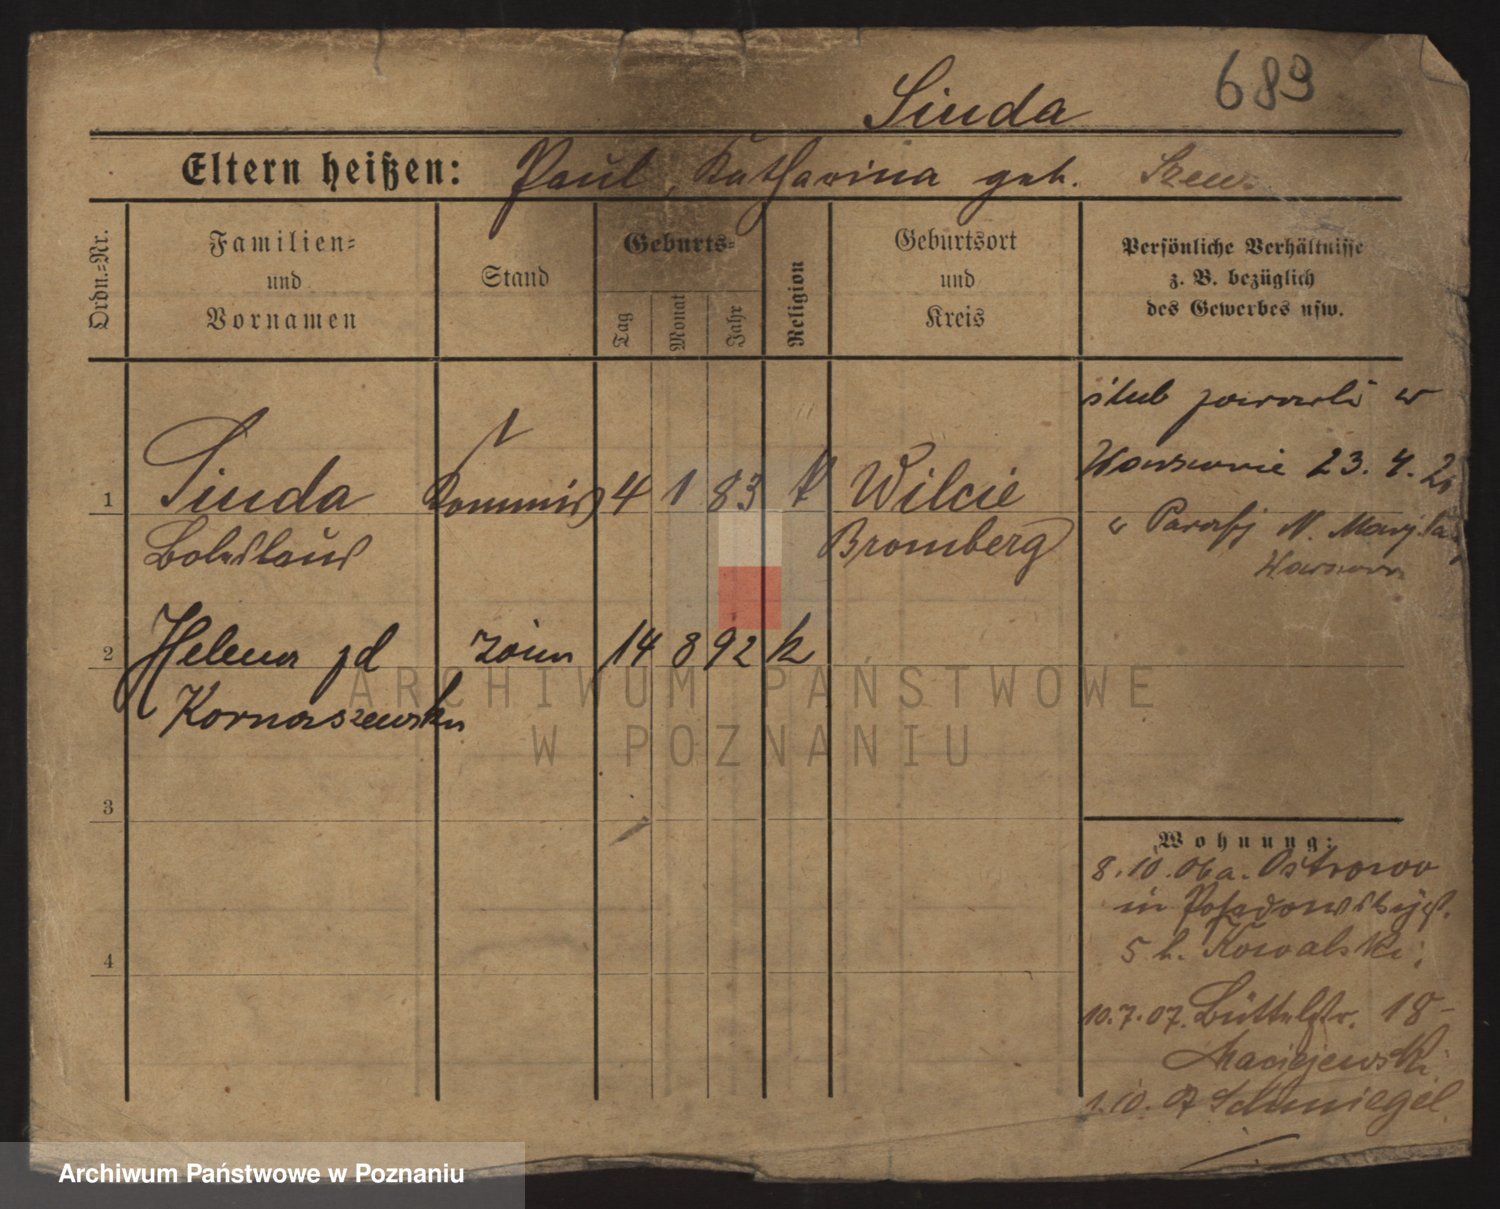 689
Sinda
Eltern heißen: Paul, Katharina geb.
Ordn.=Nr.
Familien=
und
Vornamen
Stand
Geburts=
Tag
Monat
Jahr
Religion
Geburtsort
und
Kreis
Persönliche Verhältnisse
z. B. bezüglich
des Gewerbes usw.
ślub zawarli w
Warszawie 23. 4.
1 Sinda Kommis 4 1 83 k Wilcie
Boleslaus Bromberg
w Parafj N. Marji
Warszawa
2 Helena żona 14 8 92 k
Kornaszewska
ARCHIWUM PAŃSTWOWE
W POZNANIU
3
Wohnung:
8.10.06 a. Ostrowo
in
5 b. Kowalski;
4
10.7.07. Büttelstr. 18
Maciejewski
1.10.07 Schmiegel
Archiwum Państwowe w Poznaniu